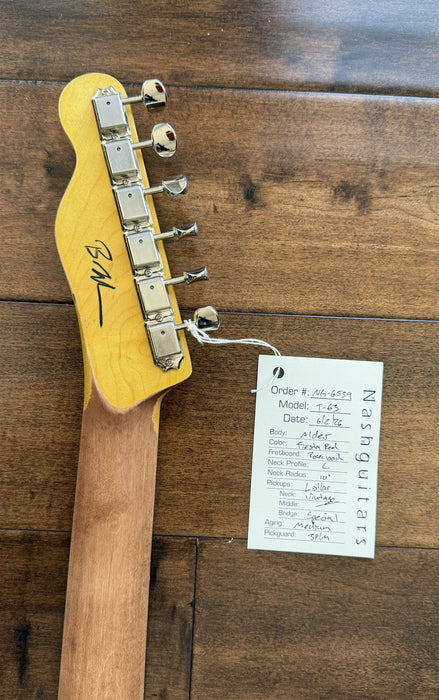 BN
Nashguitars
Order #: NG-6539
Model: T-63
Date: 6/2/26
Body: Alder
Color: Fiesta Red
Fretboard: Rosewood
Neck Profile: C
Neck Radius: 10"
Pickups: Lollar
Neck: Vintage
Middle:
Bridge: Special
Aging: Medium
Pickguard: 3PLM